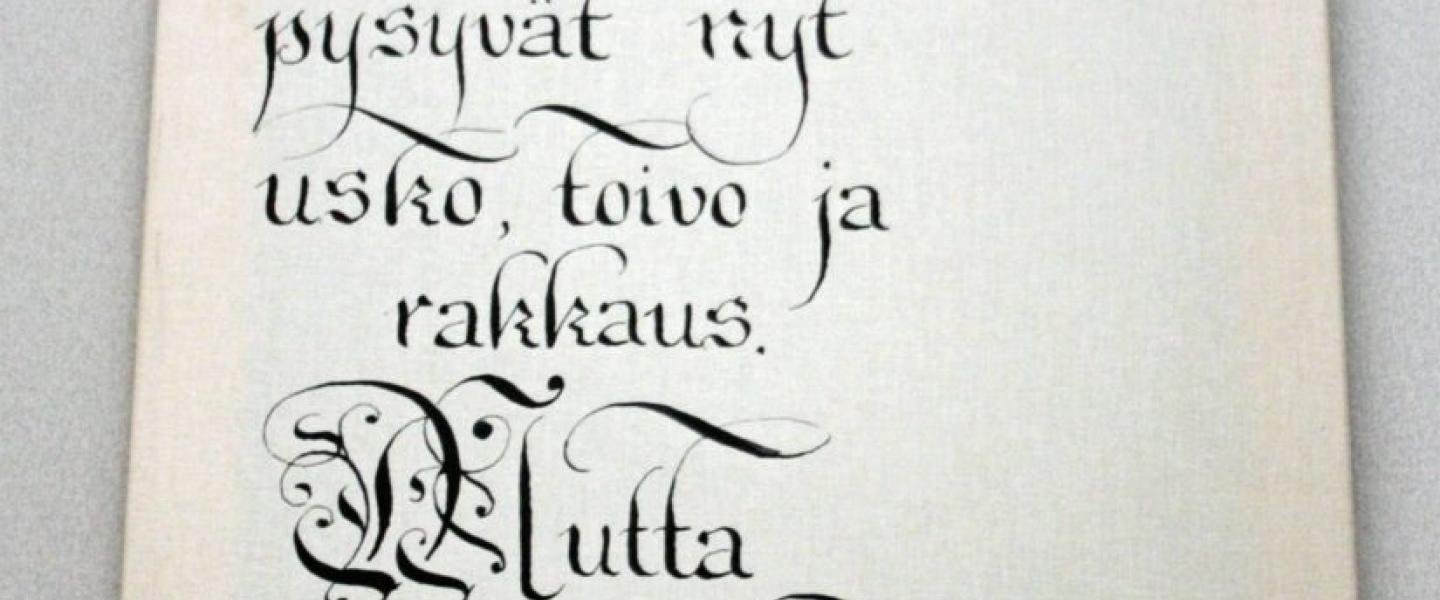 pysyvät nyt
usko, toivo ja
rakkaus.
Mutta